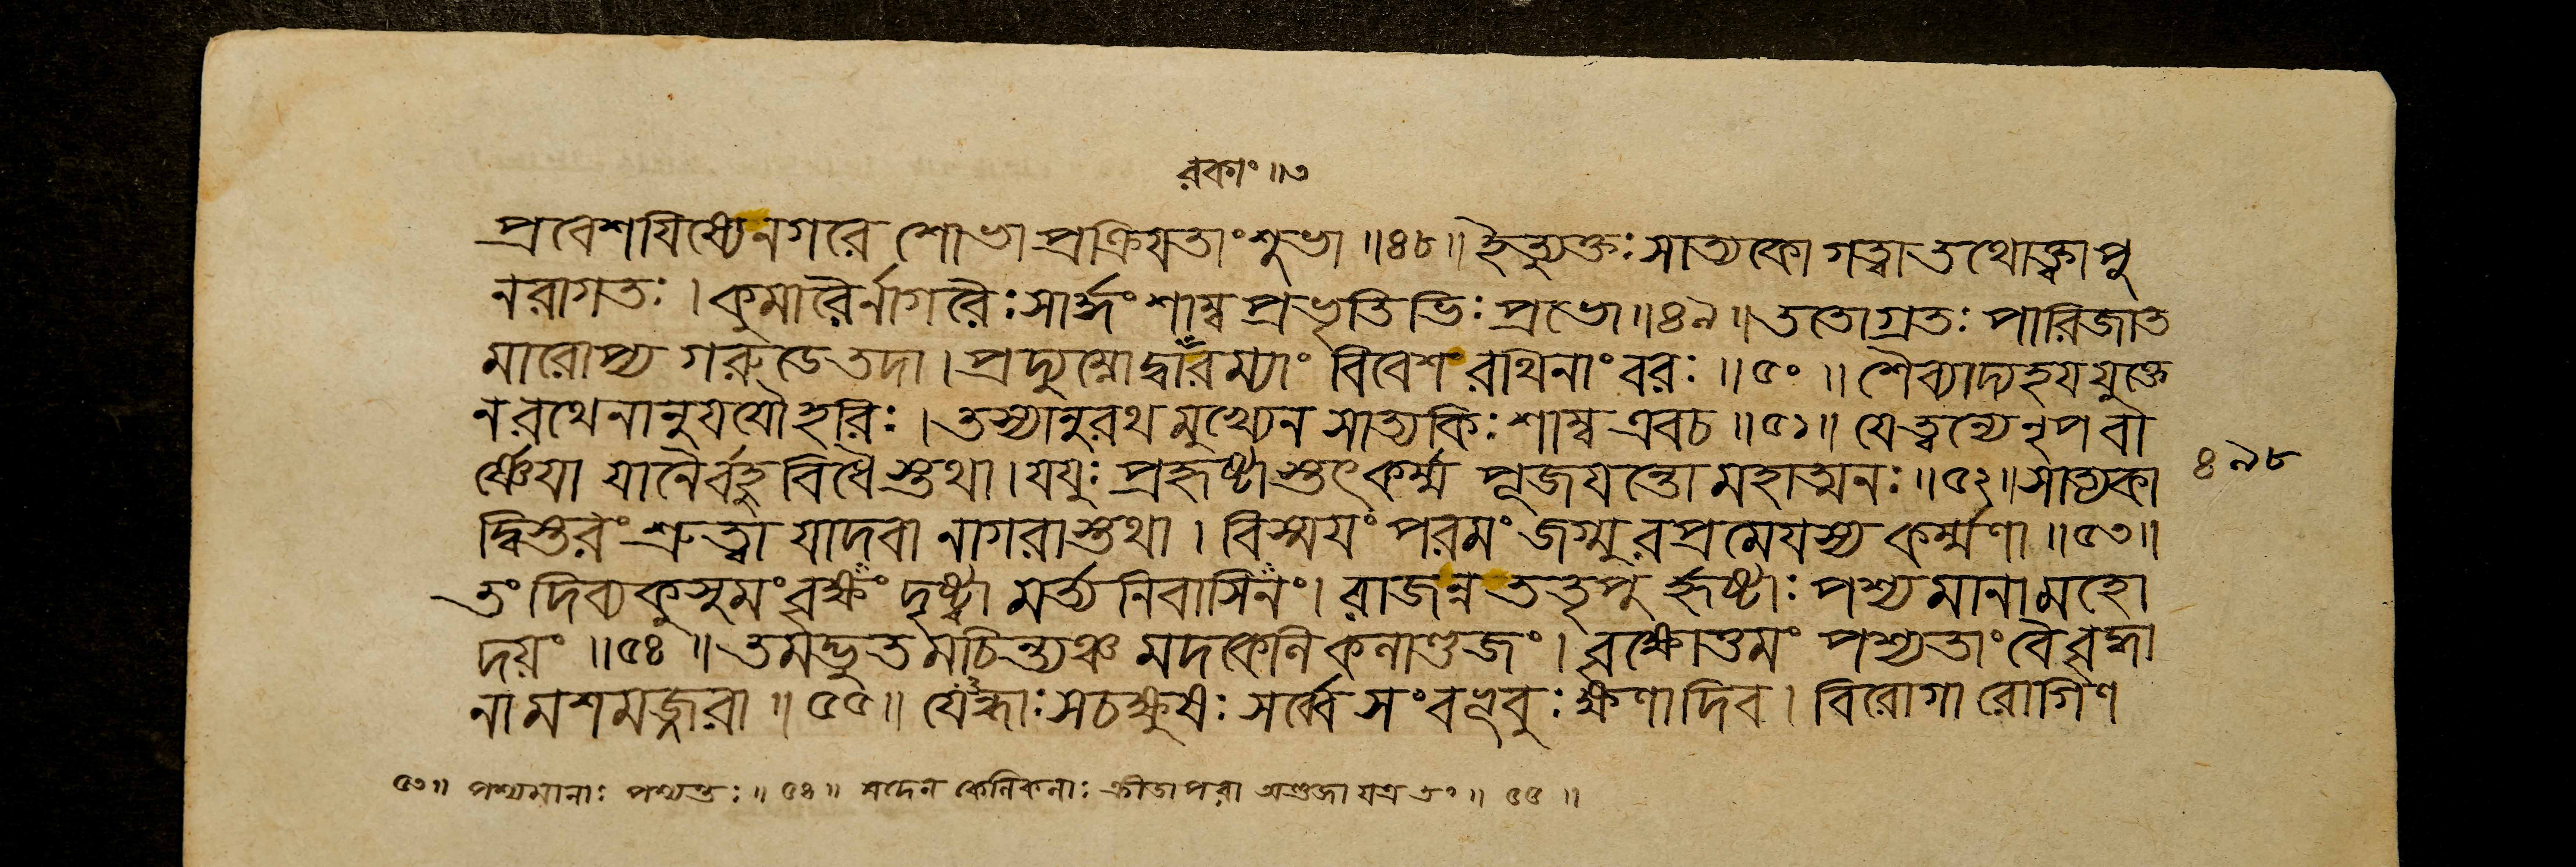 রকাং ॥৩
প্রবেশযিষ্যেনগরে শোভাপ্রক্রিযতাং শুভা ॥৪৮॥ ইত্যুক্তঃ সাত্যকো গত্বাতথোক্ত্বাপু
নরাগতঃ । কুমারৈর্নাগরৈঃ সার্দ্ধং শাম্ব প্রভৃতিভিঃ প্রভো ॥৪৯॥ ততোগ্রতঃ পারিজাত
মারোপ্য গরুডেতদা । প্রদ্যুম্নোদ্বারঁরম্যাং বিবেশ রথিনাং বরঃ ॥৫০॥ শৈব্যাদ্যহযযুক্তে
নরথেনানুযযৌহরিঃ । তস্যানুরথমুখ্যেন সাত্যকিঃ শাম্ব এবচ ॥৫১॥ যেত্বন্যেনৃপবা
র্ষ্ণেযা যানৈর্বহুবিধৈস্তথা । যযুঃ প্রহৃষ্টাস্তৎকর্ম্ম পূজযন্তোমহাত্মনঃ ॥৫২॥ সাত্যকা
দ্বিস্তরং শ্রুত্বা যাদবা নাগরাস্তথা । বিস্মযং পরমং জগ্মুরপ্রমেযস্য কর্ম্মণা ॥৫৩॥
তং দিব্যকুসুমং বৃক্ষং দৃষ্ট্বা মর্ত্যনিবাসিনং । রাজন্ন ততৃপু র্হৃষ্টাঃ পশ্যমানামহো
দয়ং ॥৫৪॥ তমদ্ভুতমচিন্ত্যঞ্চ মদকেনিকনাণ্ডজং । বৃক্ষোত্তমং পশ্যতাং বৈবৃদ্ধা
নামশমজ্জরা ॥৫৫॥ যেন্ধাঃ সচক্ষুষঃ সর্ব্বে সংবভূবুঃ ক্ষণাদিব । বিরোগা রোগিণ
৪৯৮
৫৩॥ পশ্যমানাঃ পশ্যন্তঃ ॥৫৪॥ মদেন কেনিকনাঃ ক্রীডাপরা অণ্ডজা যত্র তং ॥ ৫৫ ॥